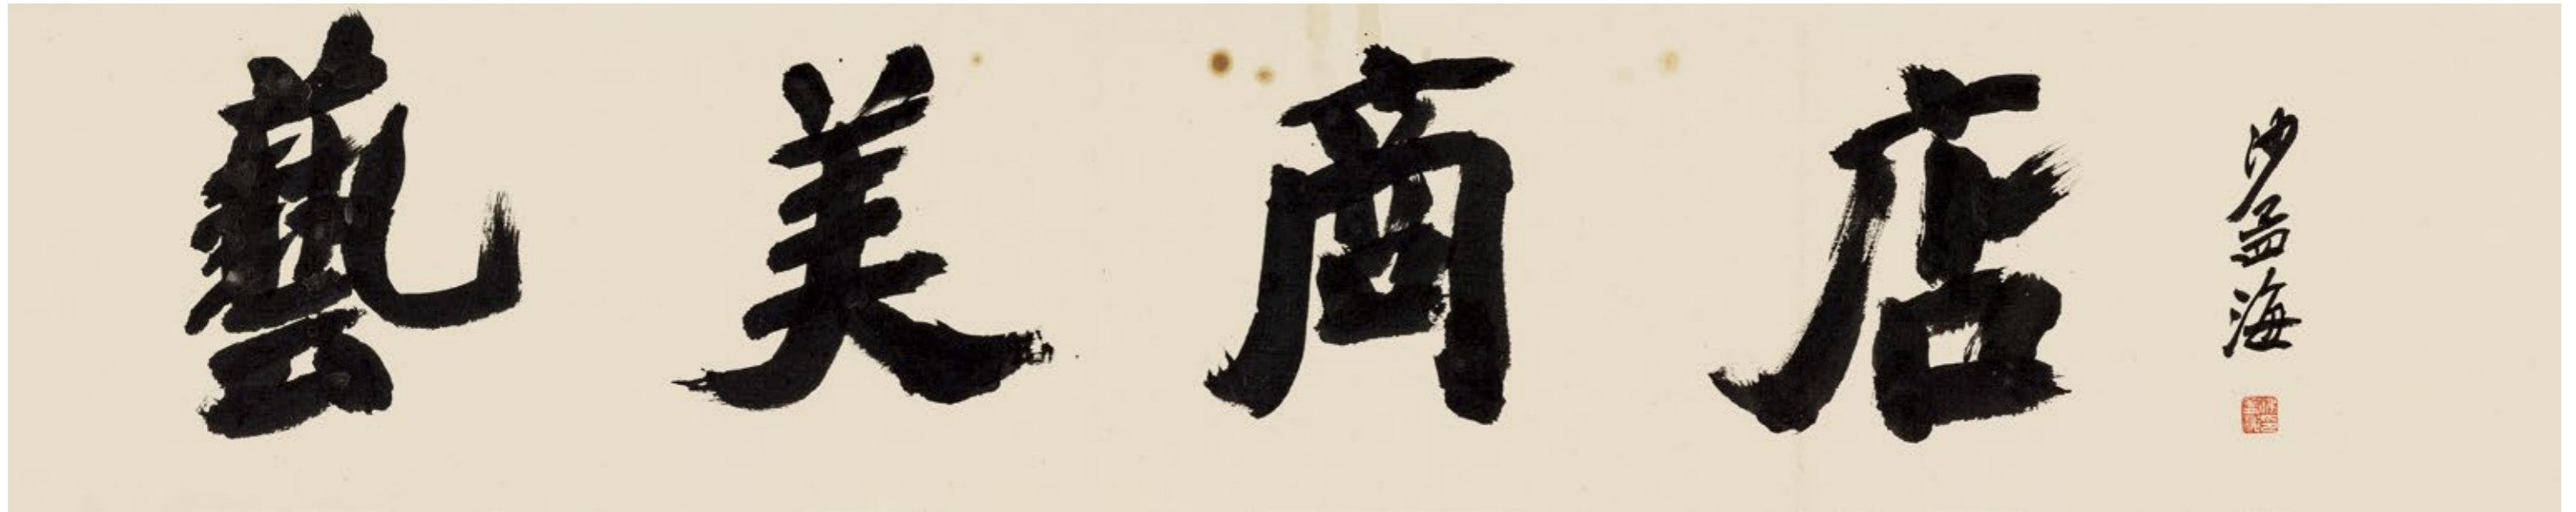 藝美商店
沙孟海